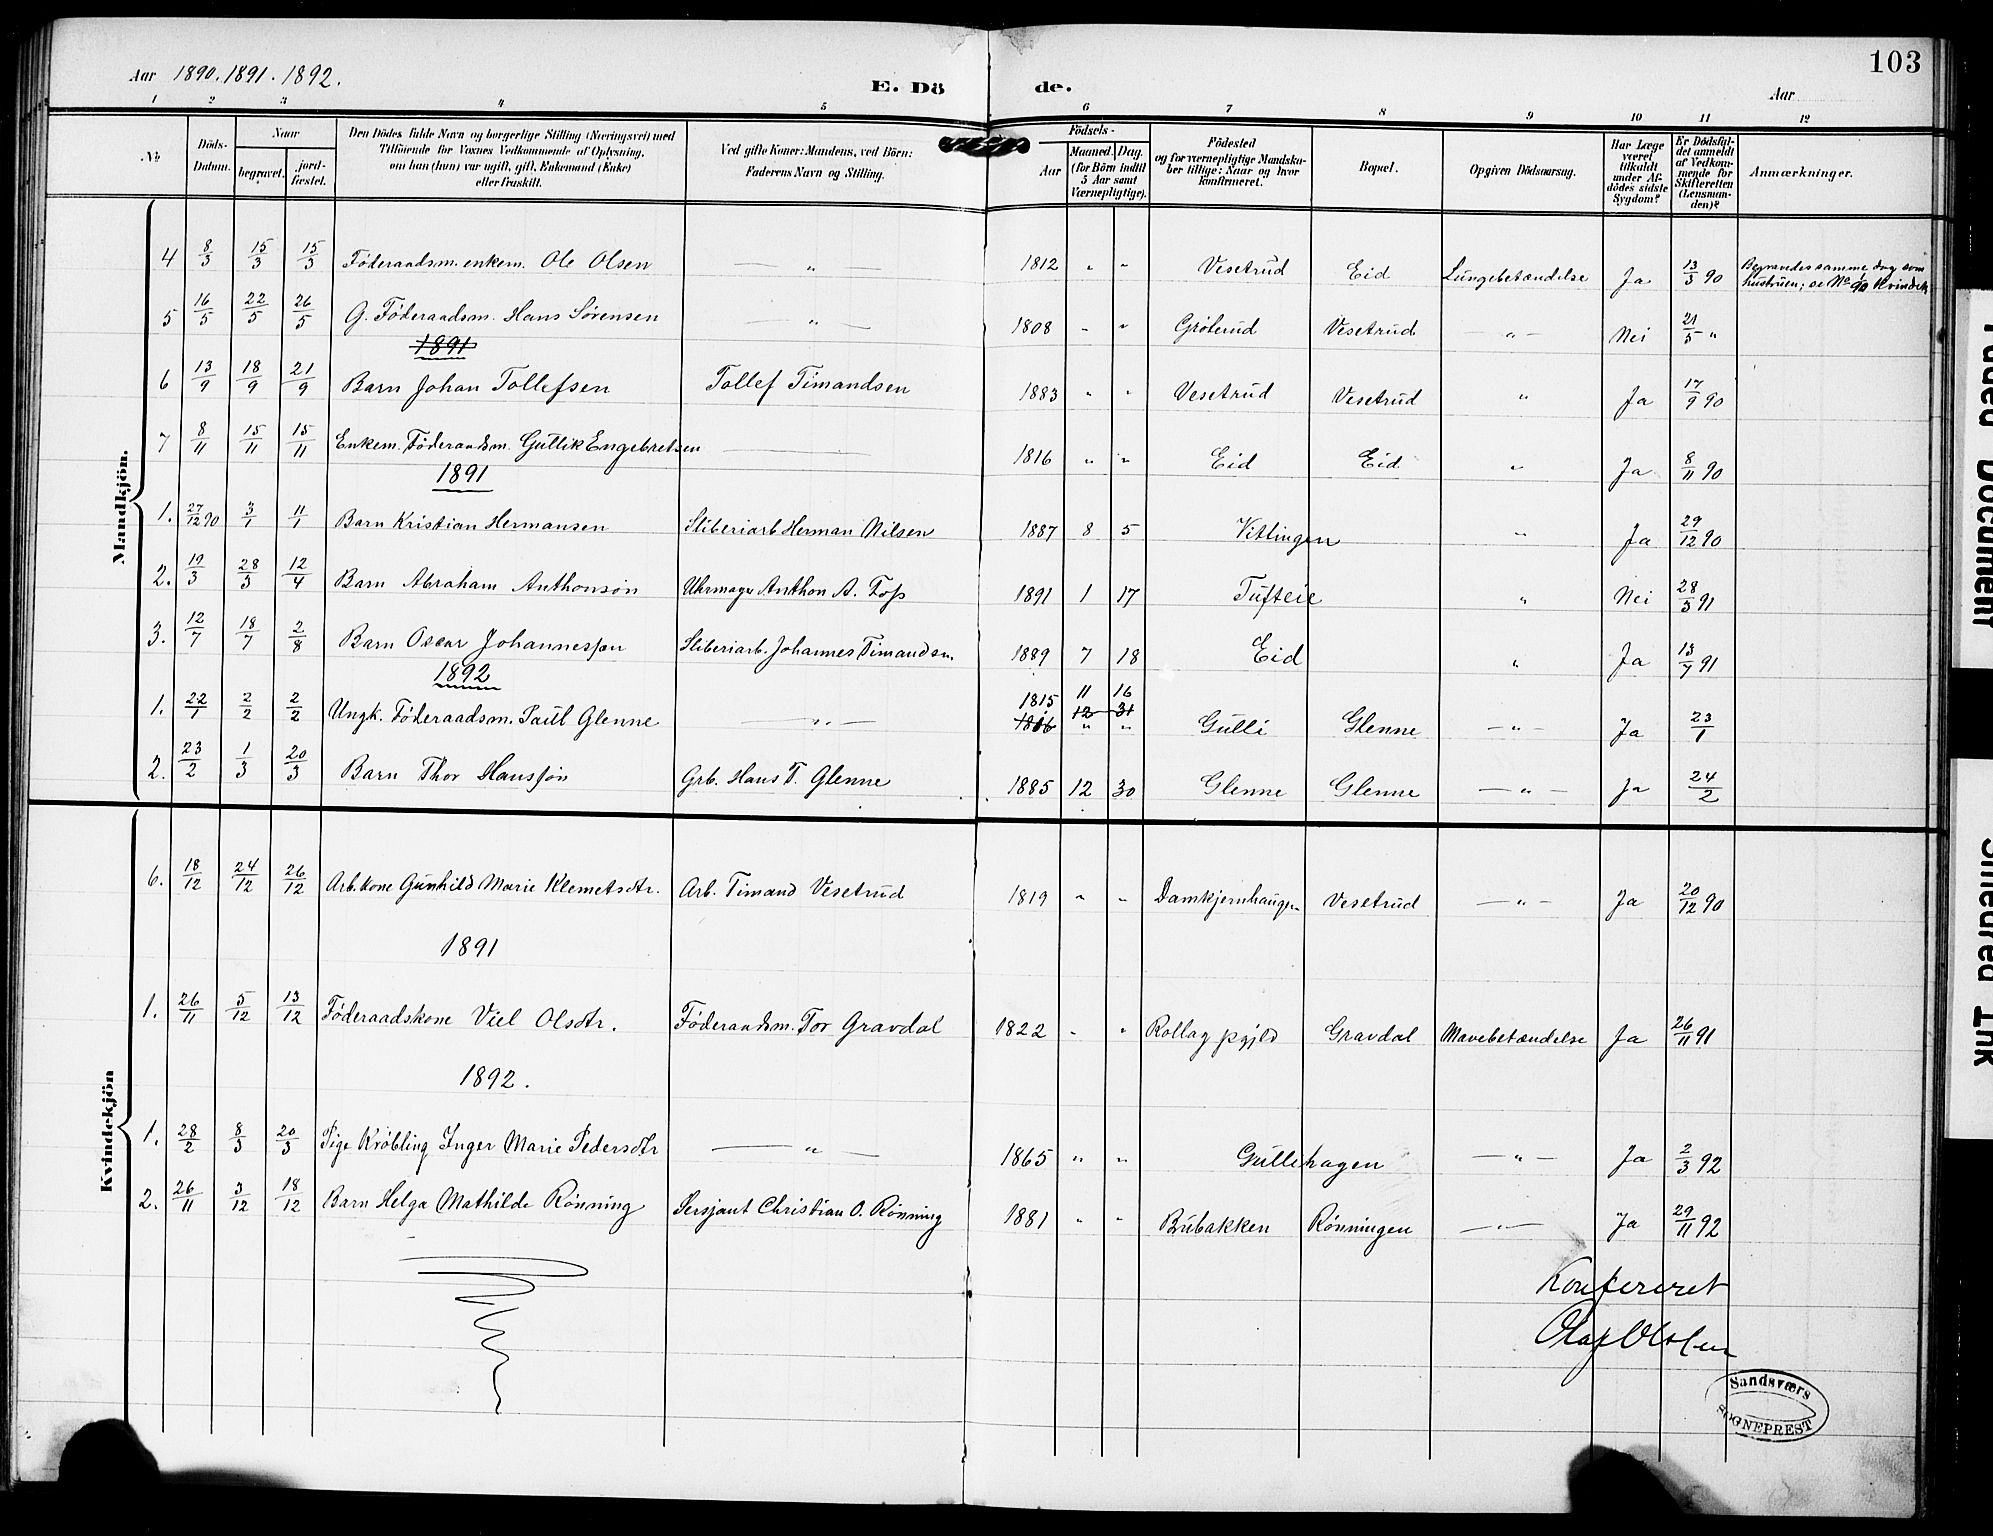 103
Aar 1890. 1891. 1892.
E. Dö de.
Aar
1 2 3 4 5 6 7 8 9 10 11 12
No
Döds-Datum.
Naar
begravet.
jord-fæstet.
Den Dödes fulde Navn og borgerlige Stilling (Næringsvei) med
Tilföiende for Voxnes Vedkommende af Oplysning,
om han (hun) var ugift, gift, Enkemand (Enke)
eller fraskilt.
Ved gifte Koner: Mandens, ved Börn:
Faderens Navn og Stilling.
Födsels-
Aar
Maaned. Dag.
(for Börn indtil
5 Aar samt
Værnepligtige).
Födested
og for værnepligtige Mandska-
ber tillige: Naar og hvor
konfirmeret.
Bopæl.
Opgiven Dödsaarsag.
Har Læge
været
tilkaldt
under Af-
dödes sidste
Sygdom?
Er Dödsfal-
det anmeldt
af Vedkom-
mende for
Skifteretten
(Lensman-
den)?
Anmærkninger.
Mandkjön.
4 8/3 15/3 15/3 Föderaadsm. enkem. Ole Olsen — " — 1812 " " Vesetrud Eid Lungebetændelse Ja 13/3 90 Begravedes samme dag som
hustruen; se No Kvindek
5 16/5 22/5 26/5 G. Föderaadsm. Hans Sörensen — " — 1808 " " Gröterud Vesetrud — " — Nei 21/5 "
1891
6 13/9 18/9 21/9 Barn Johan Tollefsen Tollef Timandsen 1883 " " Vesetrud Vesetrud " Ja 17/9 90
7 8/11 15/11 15/11 Enkem. Föderaadsm. Gullik Engebretsen — 1816 " " Eid Eid " Ja 8/11 90
1891
1. 27/12 90 3/1 11/1 Barn Kristian Hermansen Sliberiarb Herman Nilsen 1887 8 5 Vittingen " Ja 29/12 90
2. 19/3 28/3 12/4 Barn Abraham Anthonsön Uhrmager Anthon A. Foss 1891 1 17 Tufteie " Nei 28/3 91
3. 12/7 18/7 2/8 Barn Oscar Johannessøn Sliberiarb. Johannes Timandsn. 1889 7 18 Eid " Ja 13/7 91
1892
1. 22/1 2/2 2/2 Ungk. Föderaadsm. Paul Glenne — " — 1815 11 16
1816 12 31 " " Gulli Glenne — " — Ja 23/1
2. 23/2 1/3 20/3 Barn Thor Hanssøn Grb. Hans T. Glenne 1885 12 30 Glenne Glenne — " — Ja 24/2
Kvindekjön
6. 18/12 24/12 26/12 Arb. kone Gunhild Marie Klemetsdtr. Arb. Timand Vesetrud 1819 " " Damkjernhaugen Vesetrud — " — Ja 20/12 90
1891
1. 26/11 5/12 13/12 Föderaadskone Viel Olsdtr. Föderaadsm. Tor Gravdal 1822 " " Rollag pgjld Gravdal Mavebetændelse Ja 26/11 91
1892.
1. 28/2 8/3 20/3 Pige Kröbling Inger Marie Pedersdtr — " — 1865 " " Gullihagen — " — Ja 2/3 92
2. 26/11 3/12 18/12 Barn Helga Mathilde Rönning Sersjant Christian O. Rönning 1881 " " Brubakken Rönningen — " — Ja 29/11 92
Konfereret
Olaf Olsen
Sandsværs
SOGNEPREST
Faded Document
Smeared Ink